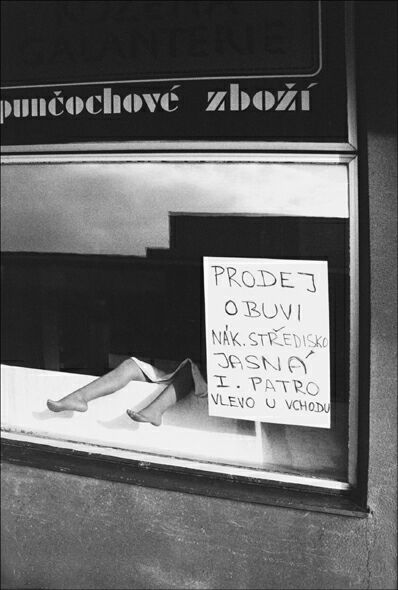 KOŽENÁ
GALANTERIE
punčochové zboží
PRODEJ
OBUVI
NÁK. STŘEDISKO
JASNÁ
I. PATRO
VLEVO U VCHODU